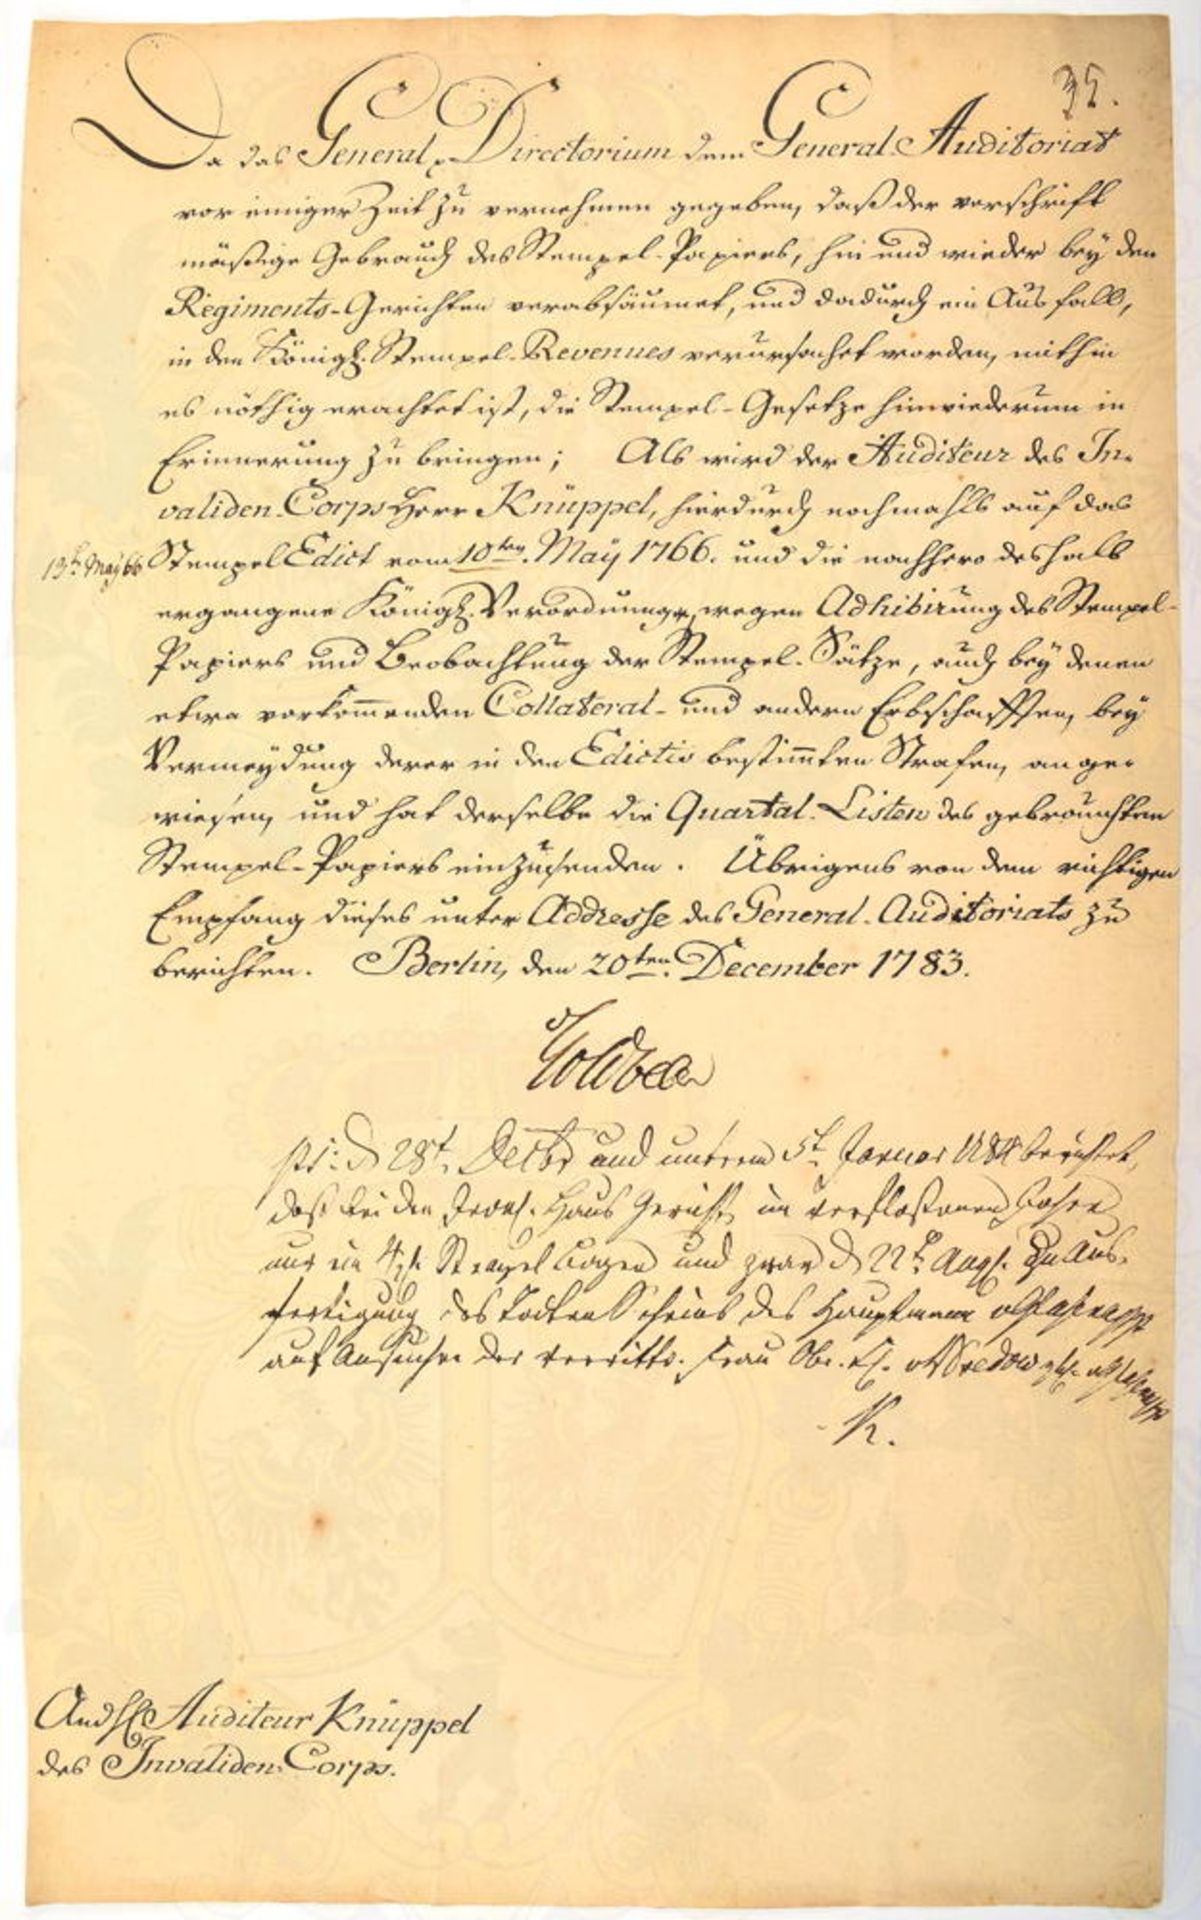 35.
Da das General-Directorium dem General-Auditoriat
vor einiger Zeit zu vernehmen gegeben, daß der vorschrift
mäßige Gebrauch des Stempel-Papiers, hin und wieder bey den
Regiments-Gerichten verabsäumet, und dadurch ein Ausfall,
in den Königl. Stempel-Revenues verursachet worden, mithin
es nöthig erachtet ist, die Stempel-Gesetze hinwiederum in
Erinnerung zu bringen; Als wird der Auditeur des In-
validen-Corps Herr Knüppel, hierdurch nochmahls auf das
13t. May 66
Stempel Edict vom 10ten. May 1766. und die nachhero deshalb
ergangene Königl. Verordnungen, wegen Adhibirung des Stempel-
Papiers und Beobachtung der Stempel-Sätze, auch bey denen
etwa vorkommenden Collateral- und andern Erbschafften, bey
Vermeydung derer in den Edictis bestimmten Strafen, ange-
wiesen, und hat derselbe die Quartal-Listen des gebrauchten
Stempel-Papiers einzusenden. Übrigens von dem richtigen
Empfang dieses unter Addresse des General-Auditoriats zu
berichten. Berlin, den 20ten. December 1783.
Goldbeck
d 28t. Decbr und unterm 5t. Januar 1784 berichtet,
daß bei den Haus Gericht im verfloßenen Jahre
nur ein Stempel Bogen und zwar d 22t. Aug. zu Aus-
fertigung des Todten Scheins des Hauptmann
auf Ansuchen der Frau
K.
An den Auditeur Knüppel
des Invaliden-Corps.